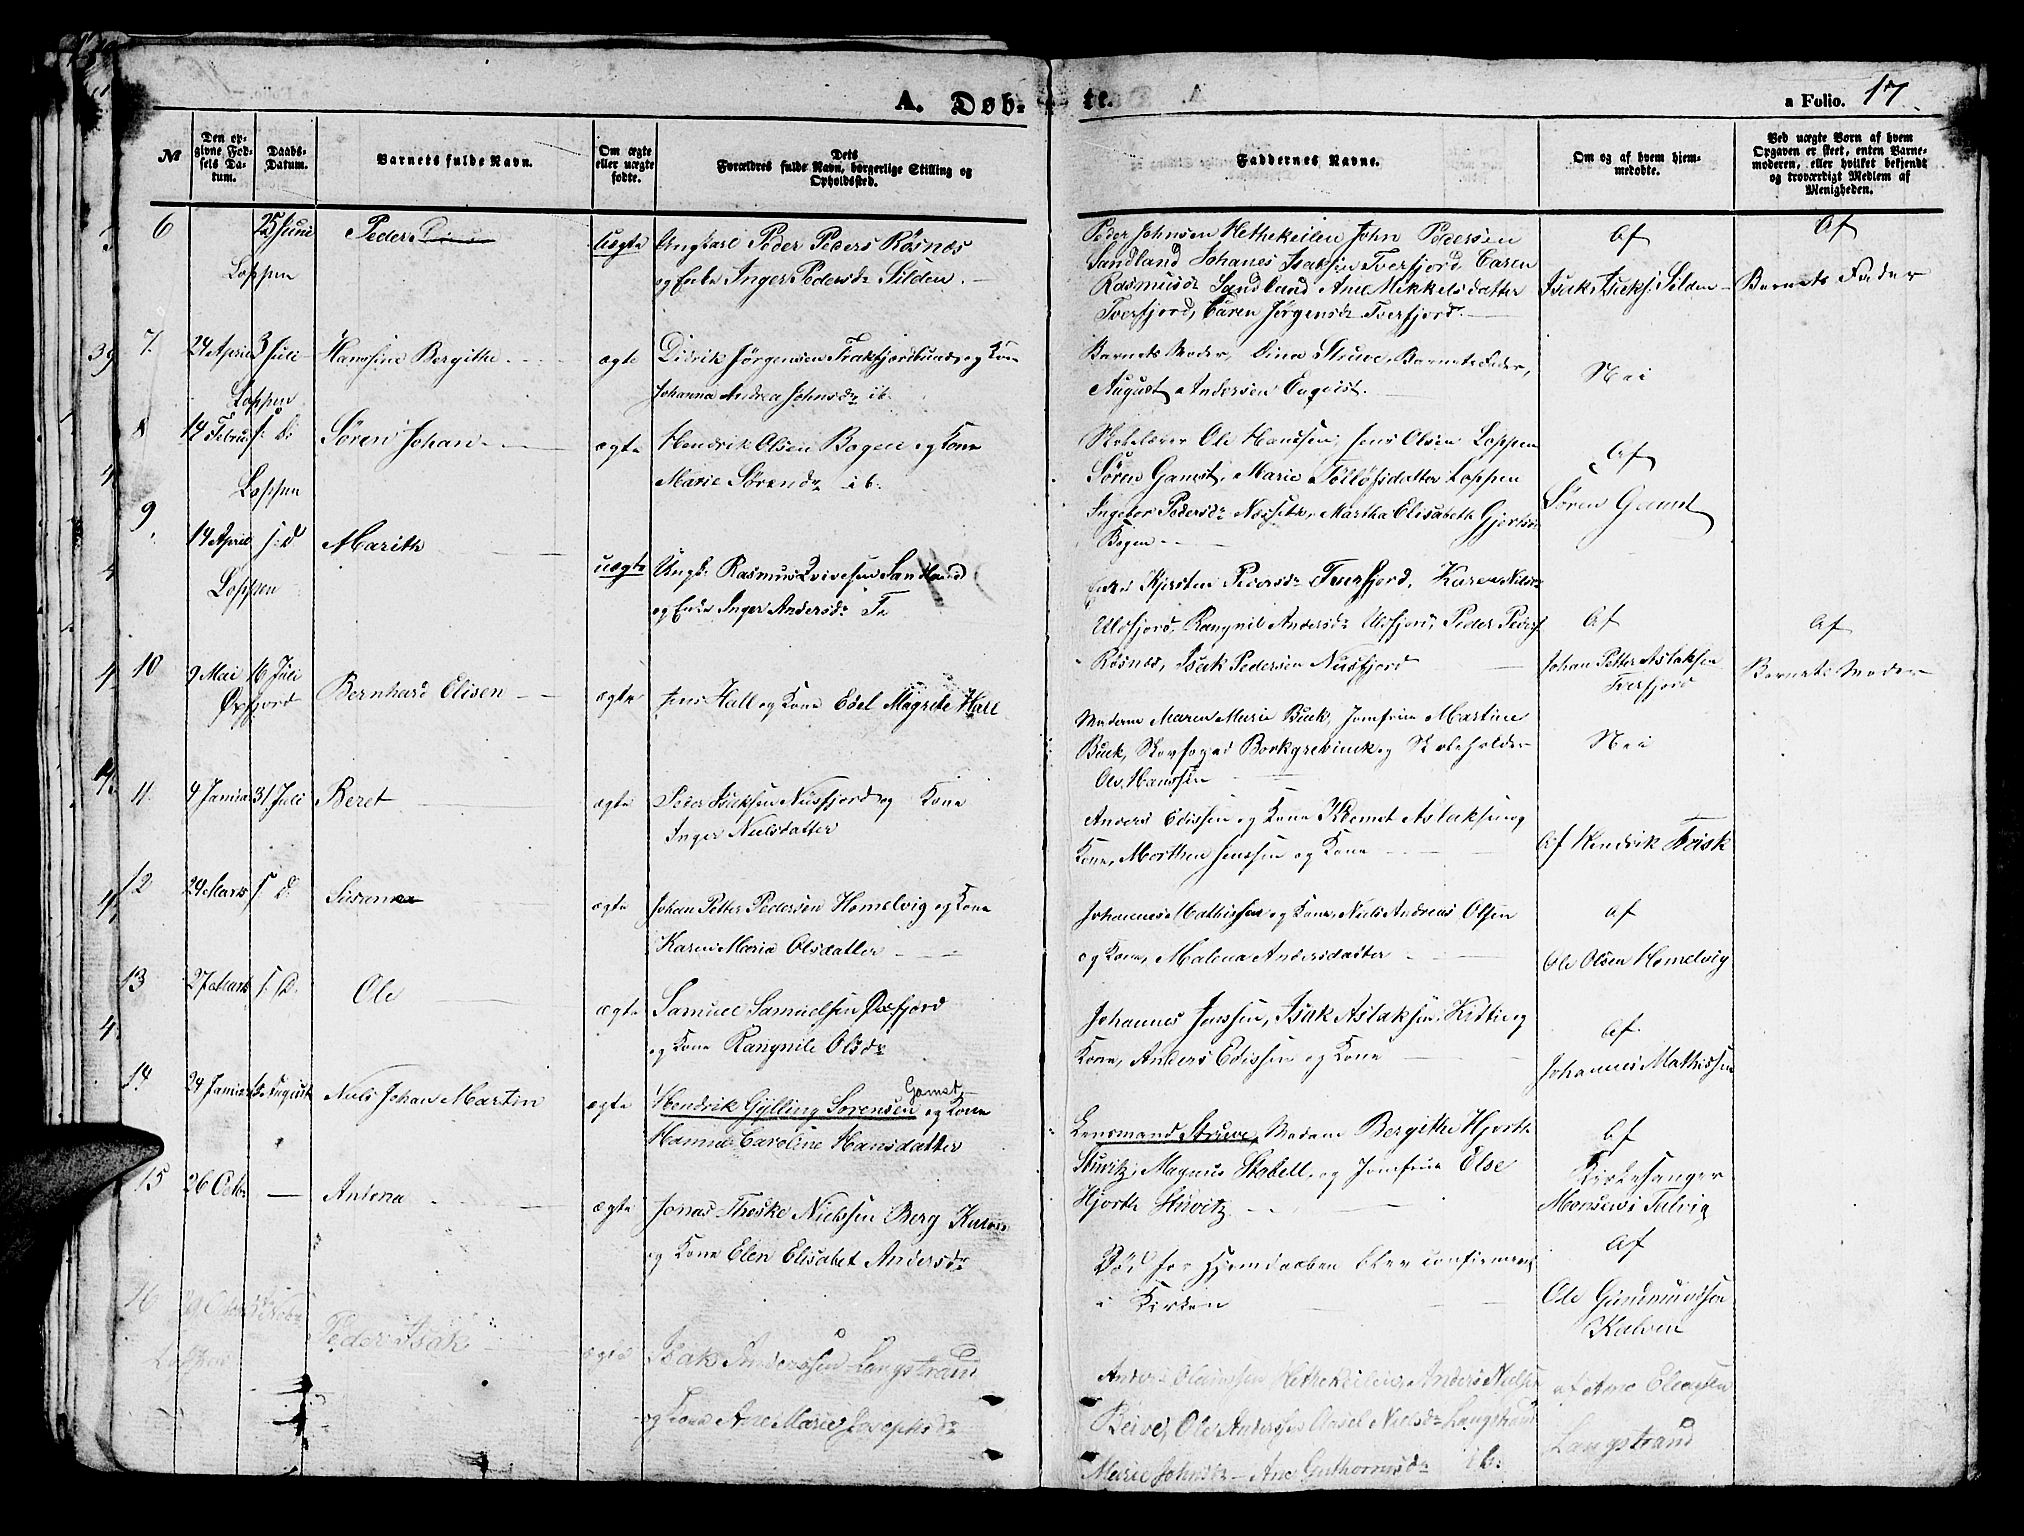 A. Døb- te. a Folio. 17
№
Den opgivne Fødsels Datum.
Daabs-Datum.
Varnets fulde Navn.
Om ægte eller uægte fødte.
Dets Forældres fulde Navn, borgerlige Stilling og Opholdssted.
Faddernes Navne.
Om og af hvem hjemmedøbte.
Ved uægte Børn af hvem Opgaven er skeet, enten Barnemoderen, eller hvilket bekjendt og troværdigt Medlem af Menigheden.
6 25 Juni Peder uægte Ungkarl Peder Peders Røsnæs
Loppen og Enke Inger Pedersdr Silden.
Peder Johnsen Hethekeilen John Pedersen
Sandland Johanes Isaksen Tverfjord Caren
Rasmusdr Sandland Ane Mikkelsdatter
Tverfjord, Caren Jørgensdr Tverfjord.
Af
Isak Isaks: Silden
Af
Barnets Fader
7. 24 April 3 Juli Hansine Bergithe ægte Didrik Jørgensen Frakfjordbund og Kone
Loppen Johanna Andrea Johnsdr ib.
Barnets Moder, Dina Struve, Barnets Fader,
August Andersen Enqvist.
Nei
8 14 Febru s: D: Søren Johan ægte Hendrik Olsen Bogen og Kone
Loppen Marie Sørensdr ib.
Skolelærer Ole Hanssen, Jens Olsen Loppen
Søren Gamst, Marie Tolløfsdatter Loppen
Ingebor Pedersdr Næsset, Martha Elisabeth
Bogen
Af
Søren Gamst
9. 14 April s: D Marith uægte Ungk: Rasmus Sandland
Loppen og Enke Inger Andersdr
Enke Kjersten Pedersdr Tverfjord, Karen Nilsdr
Ulsfjord, Rangnil Andersdr Ulsfjord, Peder Peders
Røsnæs, Isak Pedersen Nusfjord
Af
Johan Petter Aslaksen
Tverfjord
Af
Barnets Moder
10 9 Mai 16 Juli Bernhard Elisen ægte Jens Hall og Kone Edel Magrete Hall
Øxfjord
Madam Maren Maria Buck, Jomfrue Martine
Buck, Skovfoged Borkgrevinck og Skoleholder
Ole Hanssen
Nei
11. 4 Janua 31 Juli Beret ægte Peder Isaksen Nusfjord og Kone
Inger Nielsdatter
Anders Edissen og Kone Klemet Aslaksen og
Kone, Morthen Jenssen og Kone
Af Hendrik Frisk
12 24 Marts s: D. Susanna ægte Johan Petter Pedersen Homelvig og Kone
Karen Maria Olsdatter
Johannes Mathissen og Kone, Niels Andreas Olsen
og Kone, Malena Andersdatter
Af
Ole Olsen Homelvig
13 27 Marts s: D. Ole ægte Samuel Samuelsen Øxfjord
og Kone Rangnile Olsdr
Johannes Jenssen, Isak Aslaksen og
Kone, Anders Edissen og Kone
Af
Johannes Mathissen
14 24 Janua August Niels Johan Martin ægte Hendrik Gylling Sørensen Gamst og Kone
Hanna Caroline Hansdatter
Lensmand Struve, Madam Bergithe Hjorth
Stüvitz, Magnus Stabell, og Jomfrue Else
Hjorth Stüvitz
Af
Kirkesanger
Monsen i Talvig
15 26 Octbr — Antona ægte Jonas Nielssen Berg
og Kone Elen Elisabet Andersdr
Død før Hjemdaaben blev confirmeret
i Kirken
Af
Ole Gundmundsen
Kalven
16 29 Peder Isak ægte Isak Anderssen Langstrand
Loppen og Kone Ane Marie Josephsdr
Anders Olaussen Hethekeilen Anders Nielsen
Ole Andersen Nielsdr Langstrand
Marie Johnsdr — Ane Guthormsdr ib:
af Arne Eliassen
Langstrand
39
4